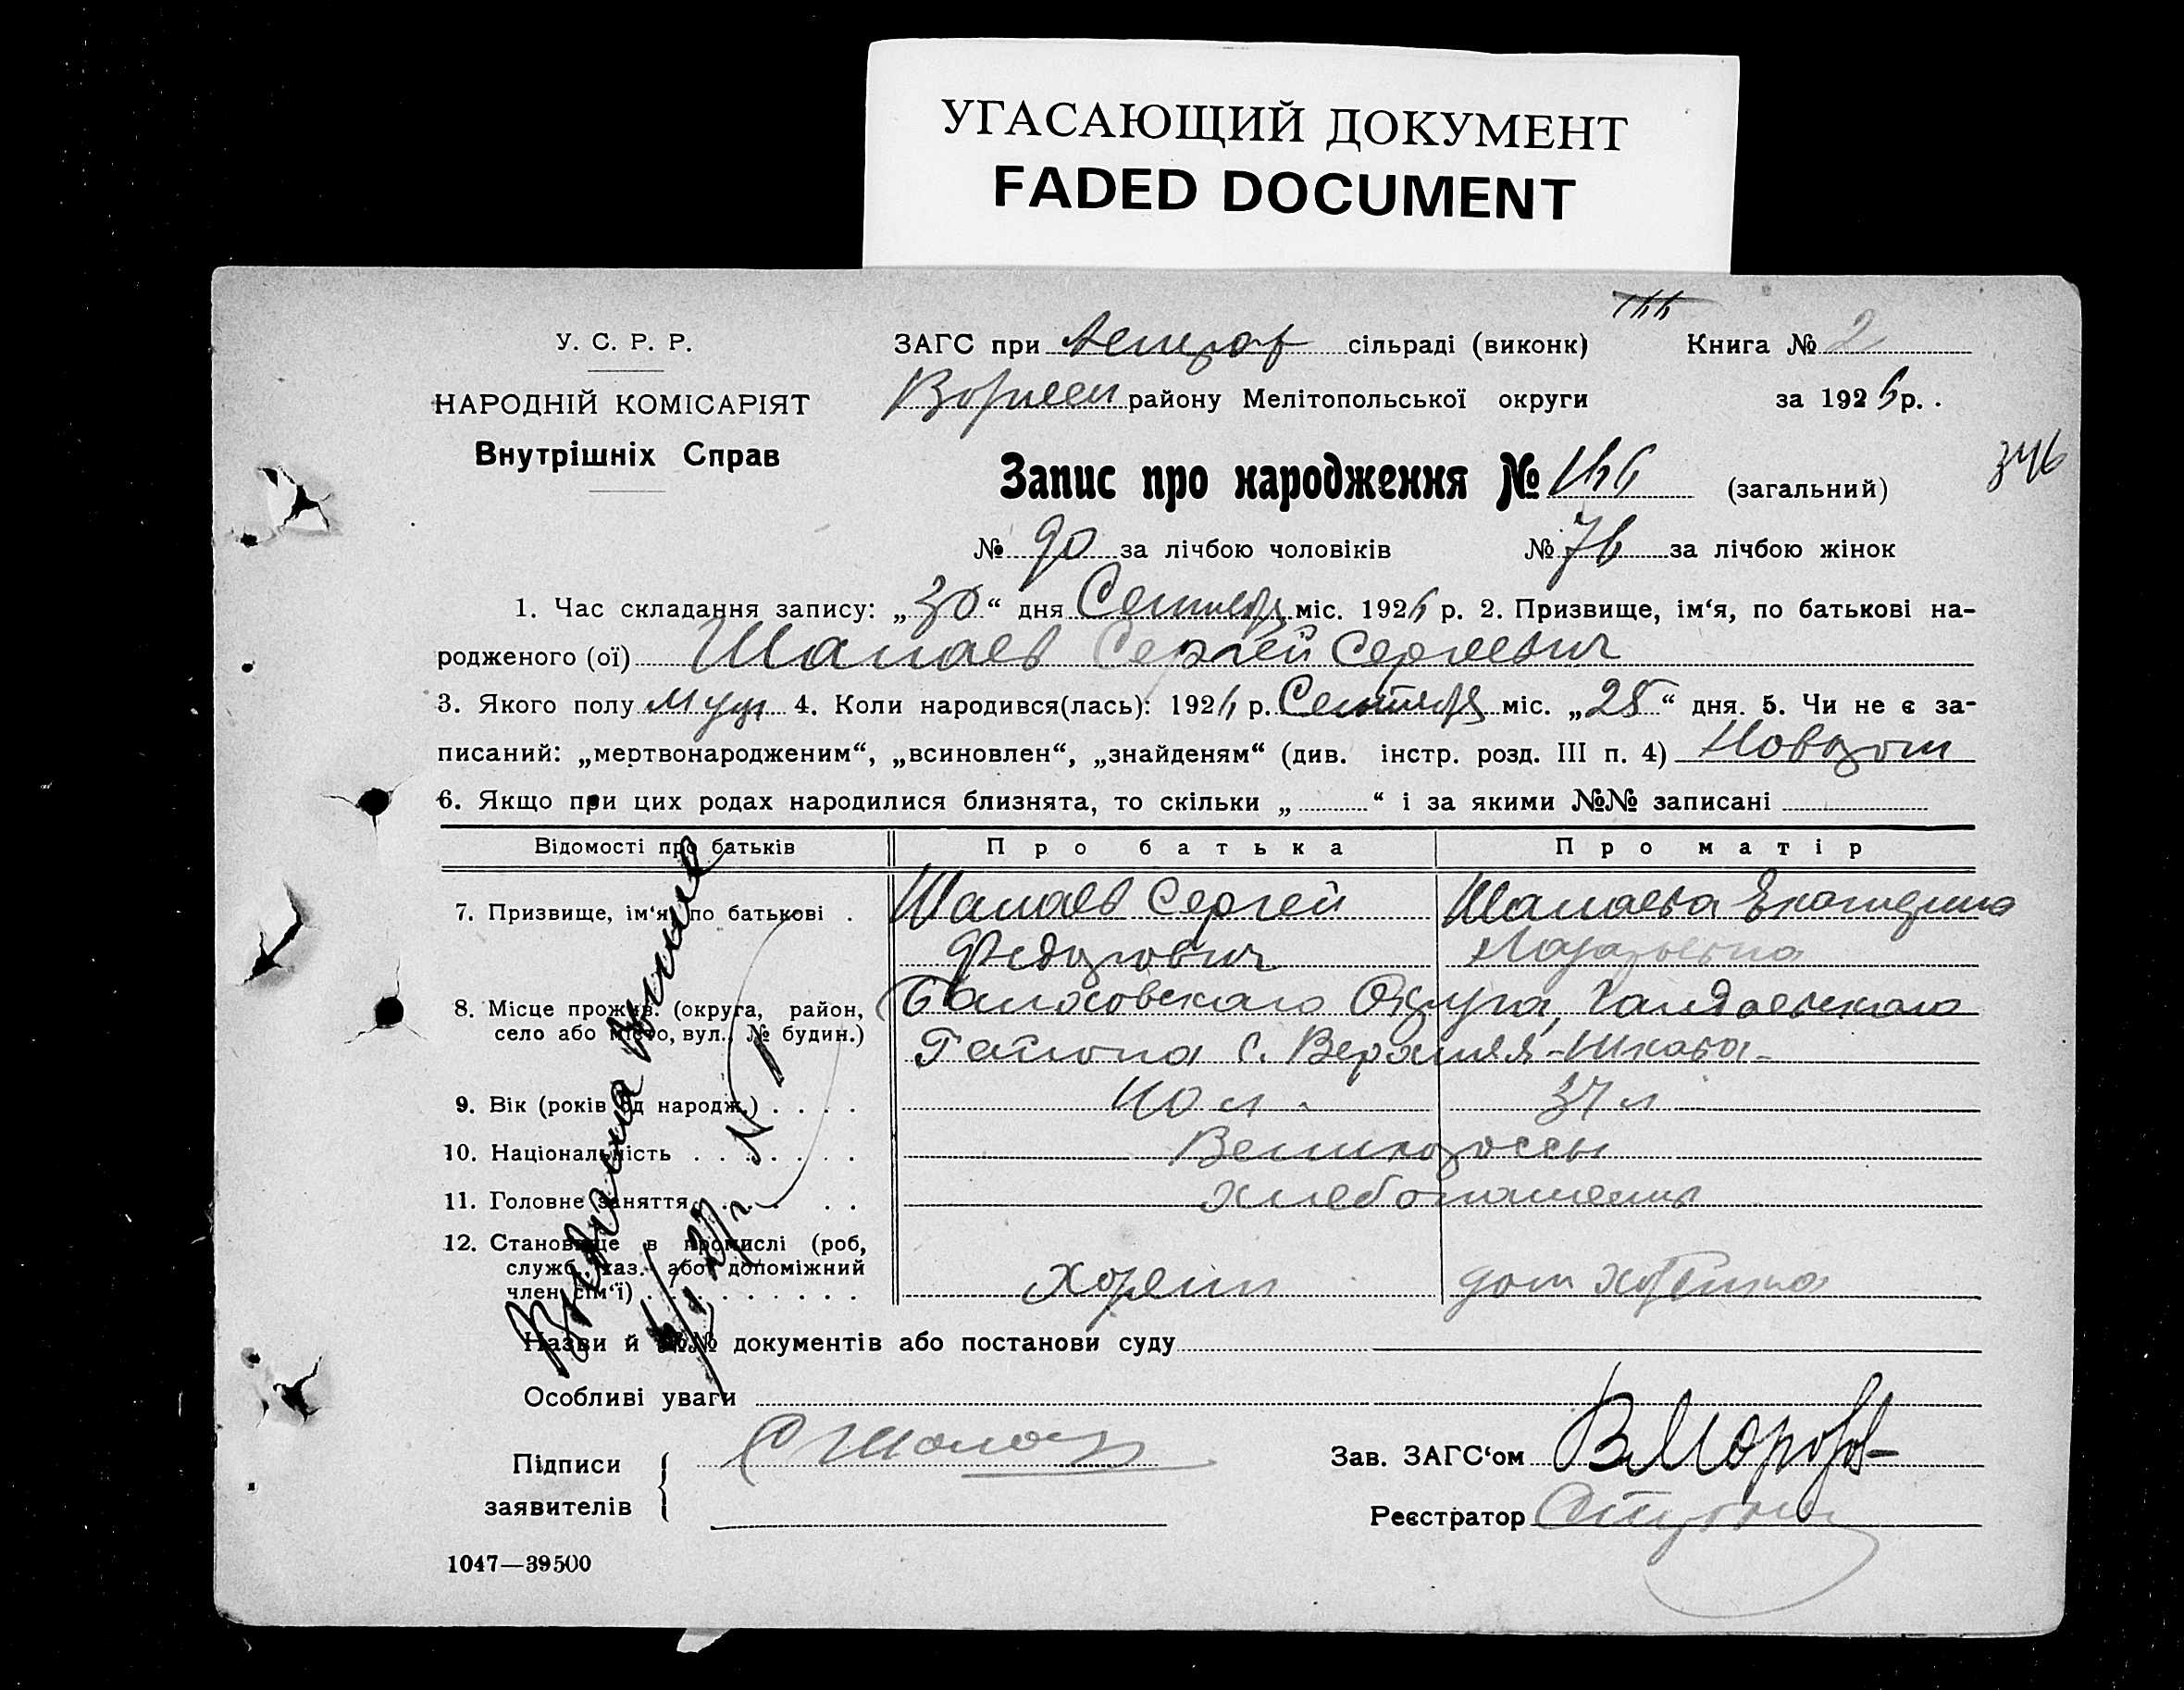 УГАСАЮЩИЙ ДОКУМЕНТ
FADED DOCUMENT
У. С. Р. Р.
НАРОДНІЙ КОМІСАРІЯТ
Внутрішніх Справ
ЗАГС при сільраді (виконк) Книга № 2
району Мелітопольської округи за 1926 р.
346
Запис про народження № 166 (загальний)
№ 90 за лічбою чоловіків № 76 за лічбою жінок
1. Час складання запису: „30“ дня Сентября міс. 1926 р. 2. Призвище, ім‘я, по батькові на-
родженого (ої) Шамаев Сергей Сергеевич
3. Якого полу муж 4. Коли народився(лась): 1926 р. Сентября міс. „25“ дня. 5. Чи не є за-
писаний: „мертвонародженим“, „всиновлен“, „знайденям“ (див. інстр. розд. III п. 4)
6. Якщо при цих родах народилися близнята, то скільки „ “ і за якими №№ записані
Відомості про батьків Про батька Про матір
7. Призвище, ім‘я, по батькові . Шамаев Сергей Шамаева Екатерина
Федорович Лазарьевна
8. Місце прожив. (округа, район, Округа,
село або місто, вул., № будин.) Района с.
9. Вік (років од народж.) . . . . 40 л. 37 л
10. Національність . . . . . . . Великороссы
11. Головне заняття . . . . . Хлебопашецы
12. Становище в промислі (роб,
служб., хаз. або допоміжний
член сім‘ї) . . . . . . . . . . Хозяин дом хозяйка
Назви й №№ документів або постанови суду
Особливі уваги
Підписи
заявителів
Зав. ЗАГС‘ом В Морозов
Реєстратор
1047—39500